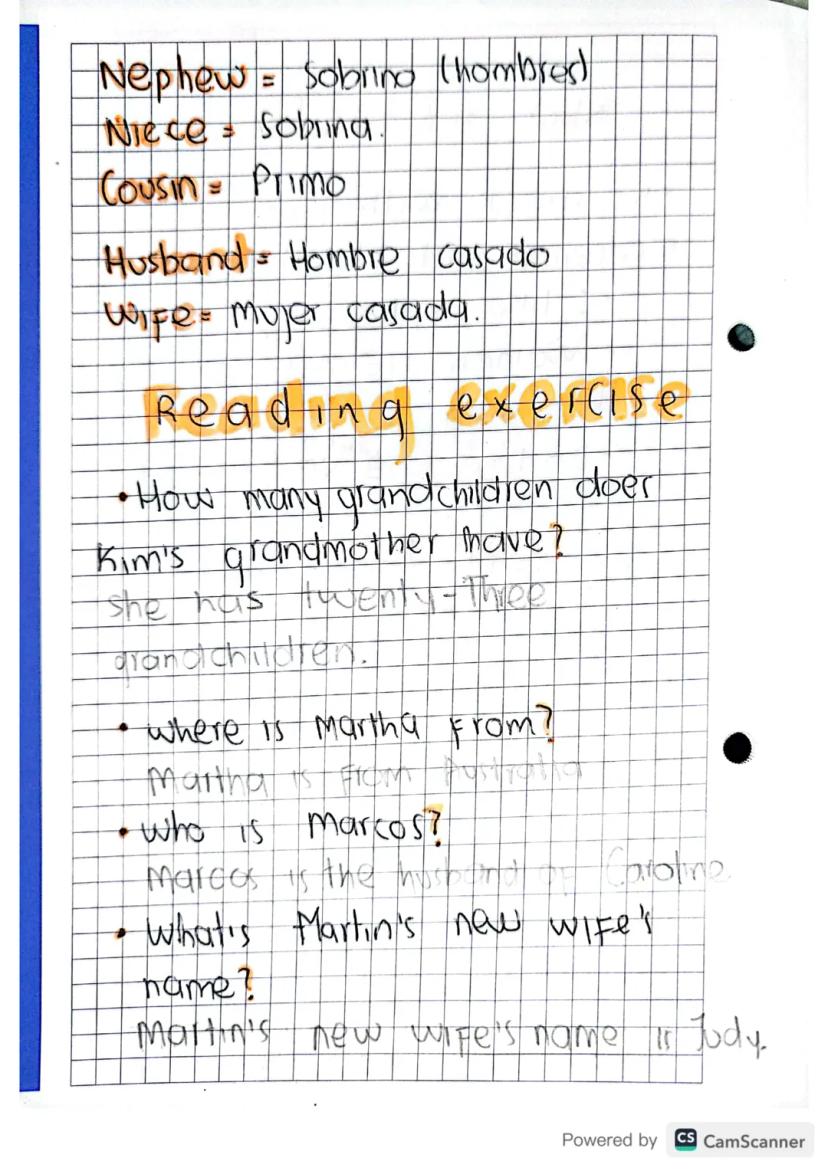 Nephew = Sobrino (hombres)
Niece = Sobrina.
Cousin = Primo
Husband = Hombre casado
Wife = Mujer casada.
Reading exercise
• How many grandchildren does
Kim's grandmother have?
she has twenty-Three
grandchildren.
• where is Martha From?
Martha is From Australia
• Who is Marcos?
Marcos is the husband of Caroline.
• What's Martin's new wife's
name?
Martin's new wife's name is Judy.
Powered by CS CamScanner